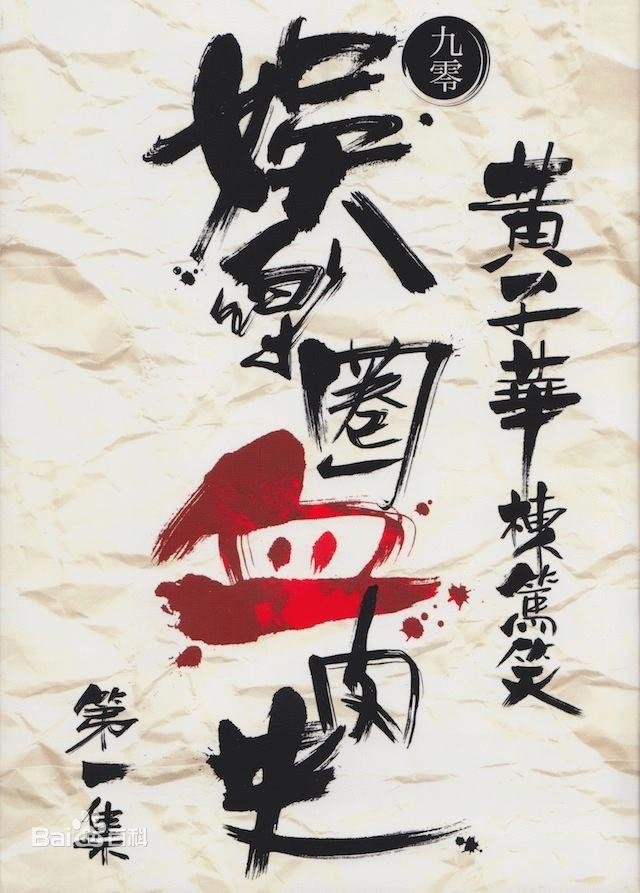 九零
黃子華
棟篤笑
娛樂圈血肉史
第一集
Baidu百科